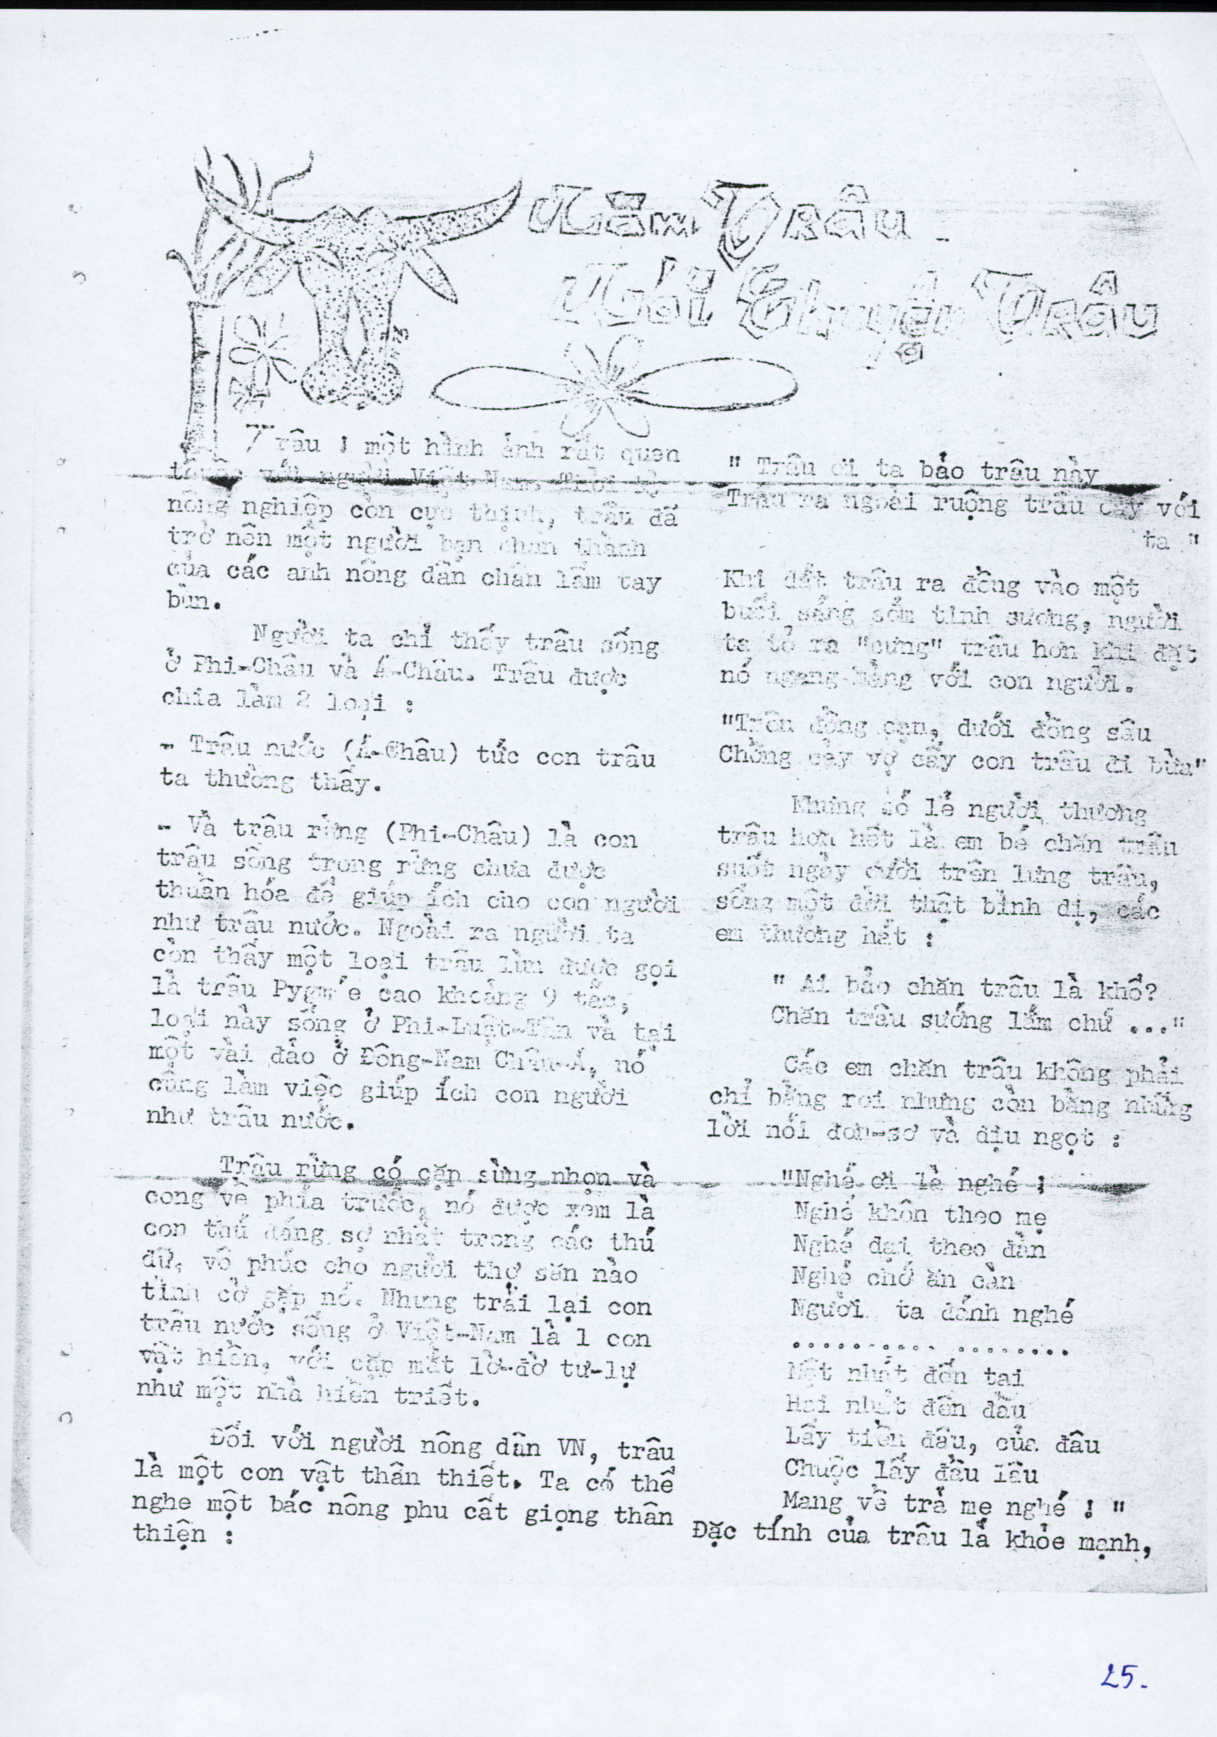 Năm Trâu
Nói Chuyện Trâu
Trâu ! một hình ảnh rất quen
thuộc với người Việt-Nam. Thời
nông nghiệp còn cực thịnh, trâu đã
trở nên một người bạn chân thành
của các anh nông dân chân lấm tay
bùn.
Người ta chỉ thấy trâu sống
ở Phi-Châu và Á-Châu. Trâu được
chia làm 2 loại :
- Trâu nước (Á-Châu) tức con trâu
ta thường thấy.
- Và trâu rừng (Phi-Châu) là con
trâu sống trong rừng chưa được
thuần hóa để giúp ích cho con người
như trâu nước. Ngoài ra người ta
còn thấy một loại trâu lùn được gọi
là trâu Pygmée cao khoảng 9 tấc,
loại này sống ở Phi-Luật-Tân và tại
một vài đảo ở Đông-Nam Châu-Á, nó
cũng làm việc giúp ích con người
như trâu nước.
Trâu rừng có cặp sừng nhọn và
cong về phía trước, nó được xem là
con thú đáng sợ nhất trong các thú
dữ, vô phúc cho người thợ săn nào
tình cờ gặp nó. Nhưng trái lại con
trâu nước sống ở Việt-Nam là 1 con
vật hiền, với cặp mắt lờ-đờ tư-lự
như một nhà hiền triết.
Đối với người nông dân VN, trâu
là một con vật thân thiết. Ta có thể
nghe một bác nông phu cất giọng thân
thiện :
" Trâu ơi ta bảo trâu này
Trâu ra ngoài ruộng trâu cày với
ta "
Khi dắt trâu ra đồng vào một
buổi sáng sớm tinh sương, người
ta tỏ ra "cưng" trâu hơn khi đặt
nó ngang hàng với con người.
"Trên đồng cạn, dưới đồng sâu
Chồng cày vợ cấy con trâu đi bừa"
Nhưng có lẽ người thương
trâu hơn hết là em bé chăn trâu
suốt ngày cưỡi trên lưng trâu,
sống một đời thật bình dị, các
em thường hát :
" Ai bảo chăn trâu là khổ?
Chăn trâu sướng lắm chứ ..."
Các em chăn trâu không phải
chỉ bằng roi nhưng còn bằng những
lời nói đơn-sơ và dịu ngọt :
"Nghé ơi là nghé !
Nghé khôn theo mẹ
Nghé dại theo đàn
Nghé chớ ăn càn
Người ta đánh nghé
...................
Một nhát đến tai
Hai nhát đến đầu
Lấy tiền đâu, của đâu
Chuộc lấy đầu lâu
Mang về trả mẹ nghé ! "
Đặc tính của trâu là khỏe mạnh,
25.